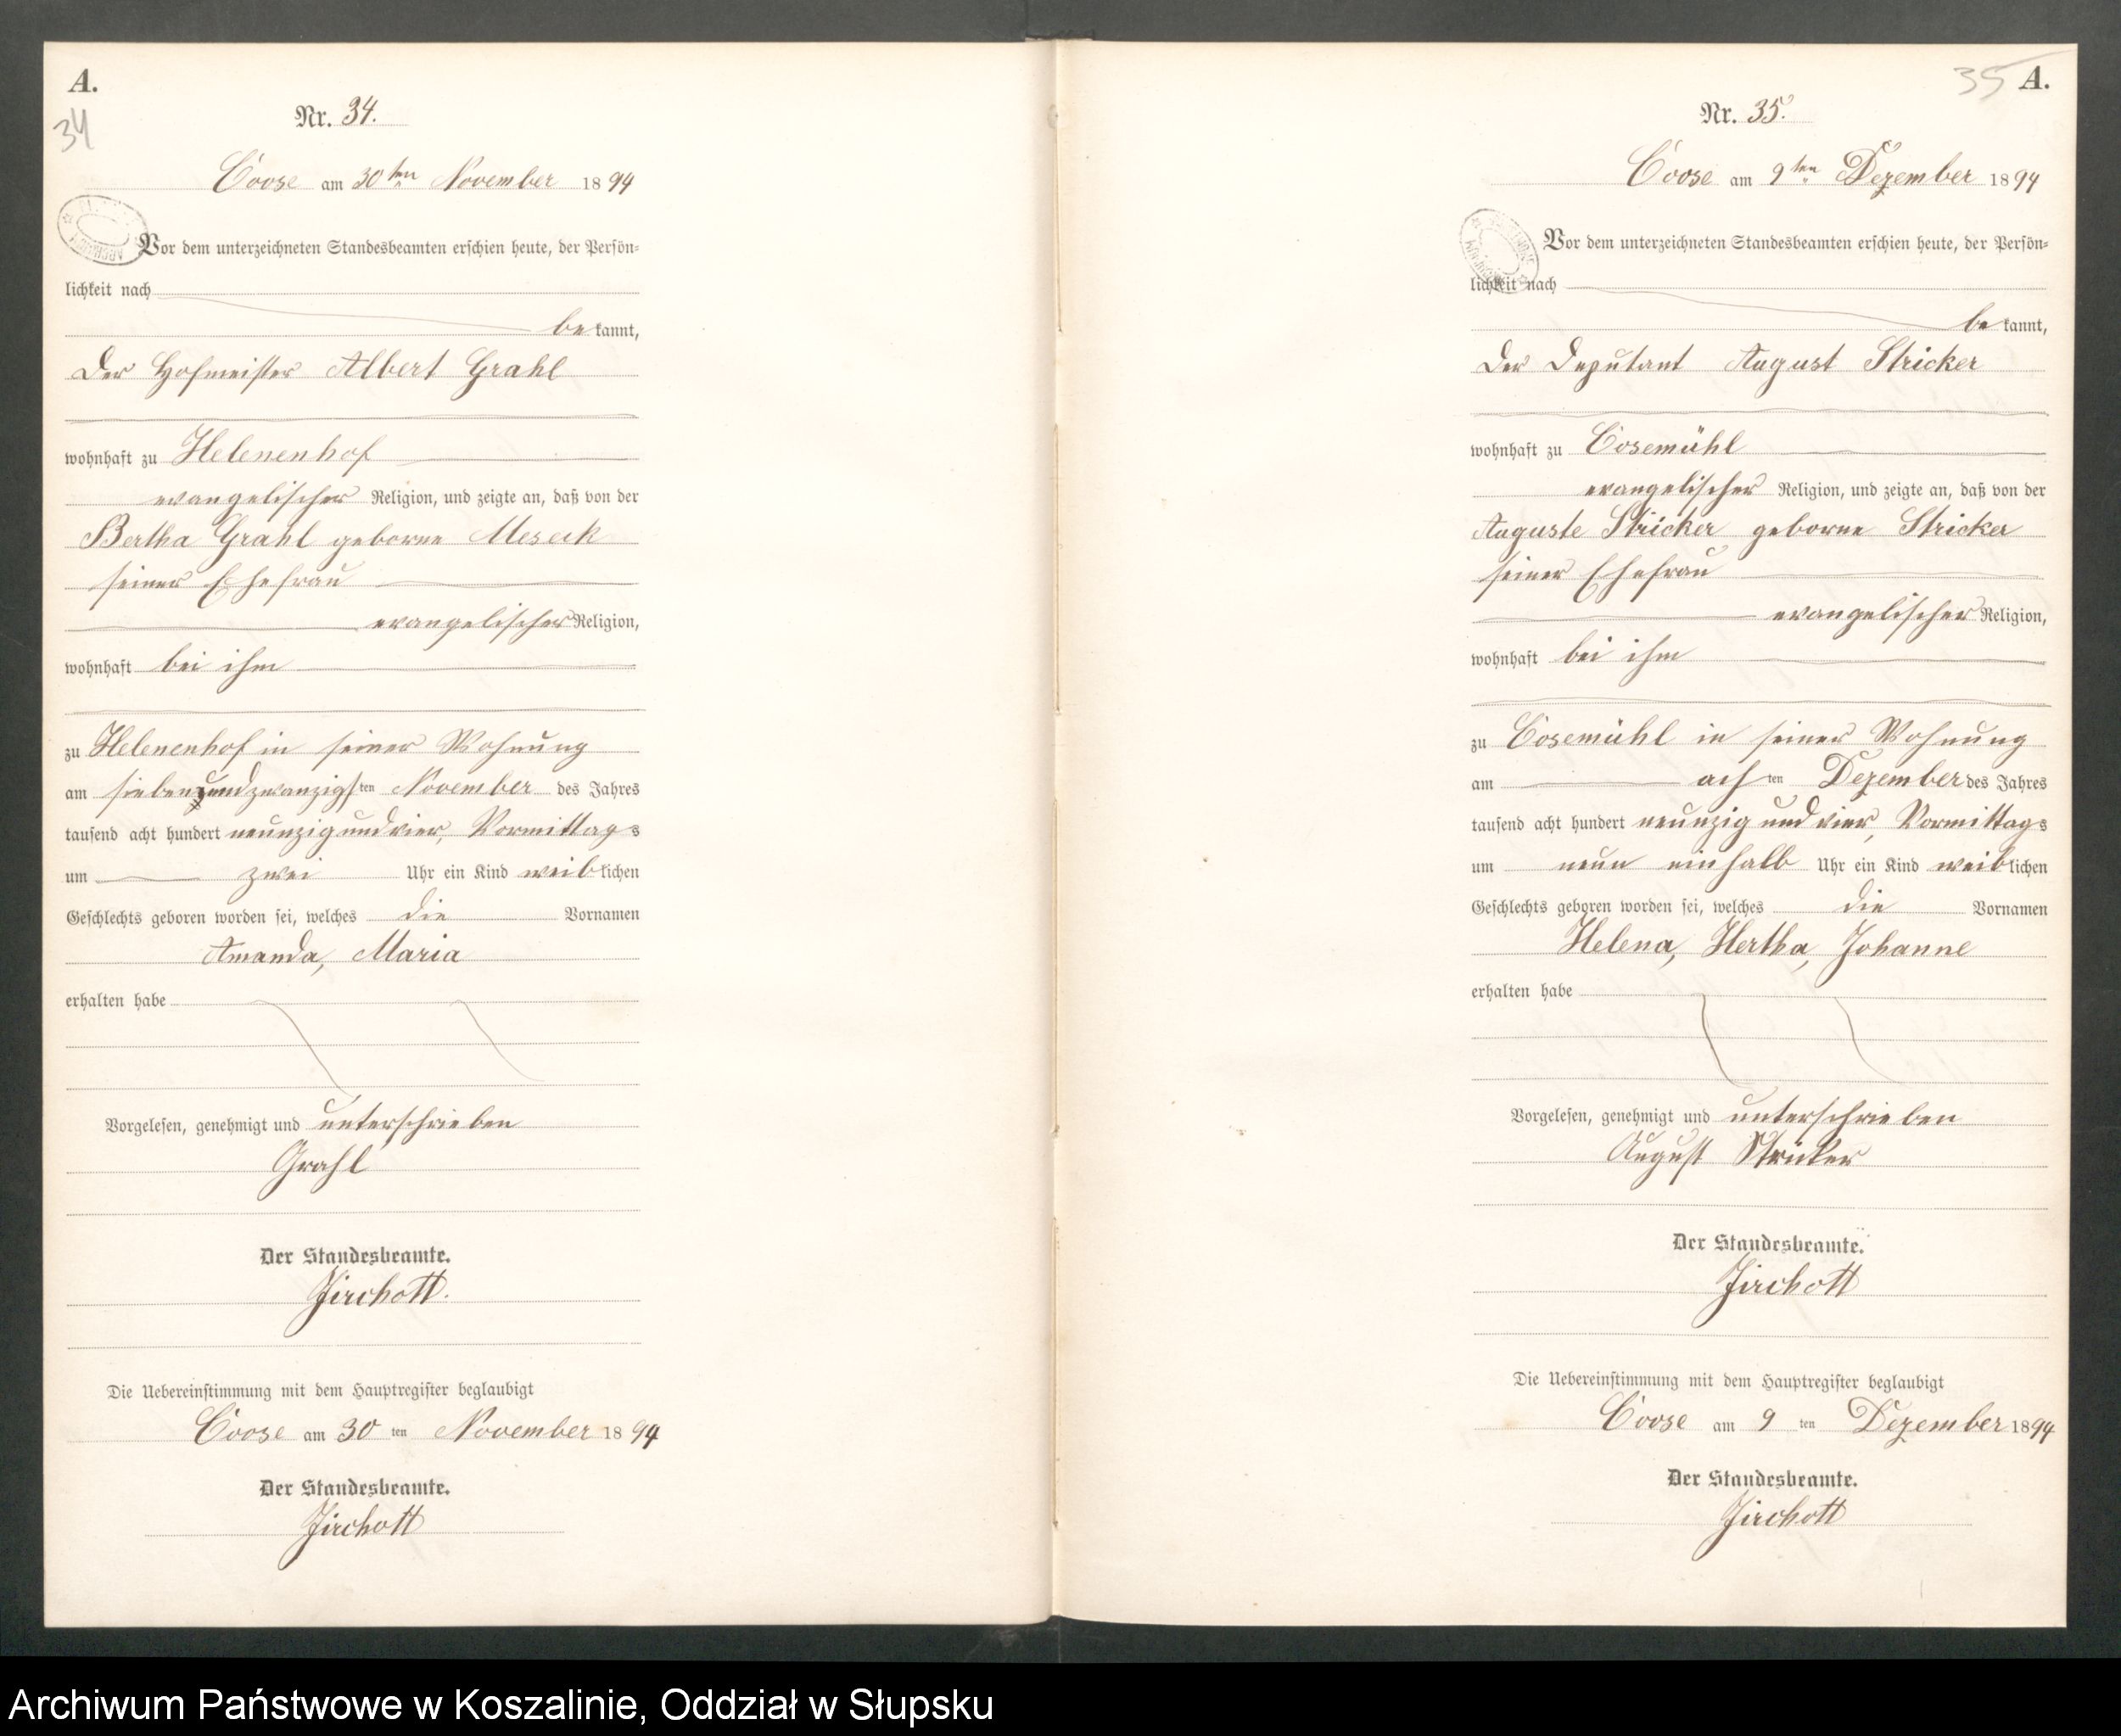 A.
34
Nr. 34.
Coose am 30ten November 1894
Vor dem unterzeichneten Standesbeamten erschien heute, der Persön=
lichkeit nach
bekannt,
Der Hofmeister Albert Grahl
wohnhaft zu Helenenhof
evangelischer Religion, und zeigte an, daß von der
Bertha Grahl geborne Meseck
seiner Ehefrau
evangelischer Religion,
wohnhaft bei ihm
zu Helenenhof in seiner Wohnung
am siebenundzwanzigsten November des Jahres
tausend acht hundert neunzig und vier, Vormittags
um zwei Uhr ein Kind weiblichen
Geschlechts geboren worden sei, welches die Vornamen
Amanda, Maria
erhalten habe
Vorgelesen, genehmigt und unterschrieben
Grahl
Der Standesbeamte.
Jirchott.
Die Uebereinstimmung mit dem Hauptregister beglaubigt
Coose am 30 ten November 1894
Der Standesbeamte.
Jirchott
35 A.
Nr. 35.
Coose am 9ten Dezember 1894
Vor dem unterzeichneten Standesbeamten erschien heute, der Persön=
lichkeit nach
bekannt,
Der Deputant August Stricker
wohnhaft zu Cosemühl
evangelischer Religion, und zeigte an, daß von der
Auguste Stricker geborne Stricker
seiner Ehefrau
evangelischer Religion,
wohnhaft bei ihm
zu Cosemühl in seiner Wohnung
am achten Dezember des Jahres
tausend acht hundert neunzig und vier, Vormittags
um neun einhalb Uhr ein Kind weiblichen
Geschlechts geboren worden sei, welches die Vornamen
Helena, Hertha, Johanne
erhalten habe
Vorgelesen, genehmigt und unterschrieben
August Strüker
Der Standesbeamte.
Jirchott
Die Uebereinstimmung mit dem Hauptregister beglaubigt
Coose am 9 ten Dezember 1894
Der Standesbeamte.
Jirchott
Archiwum Państwowe w Koszalinie, Oddział w Słupsku